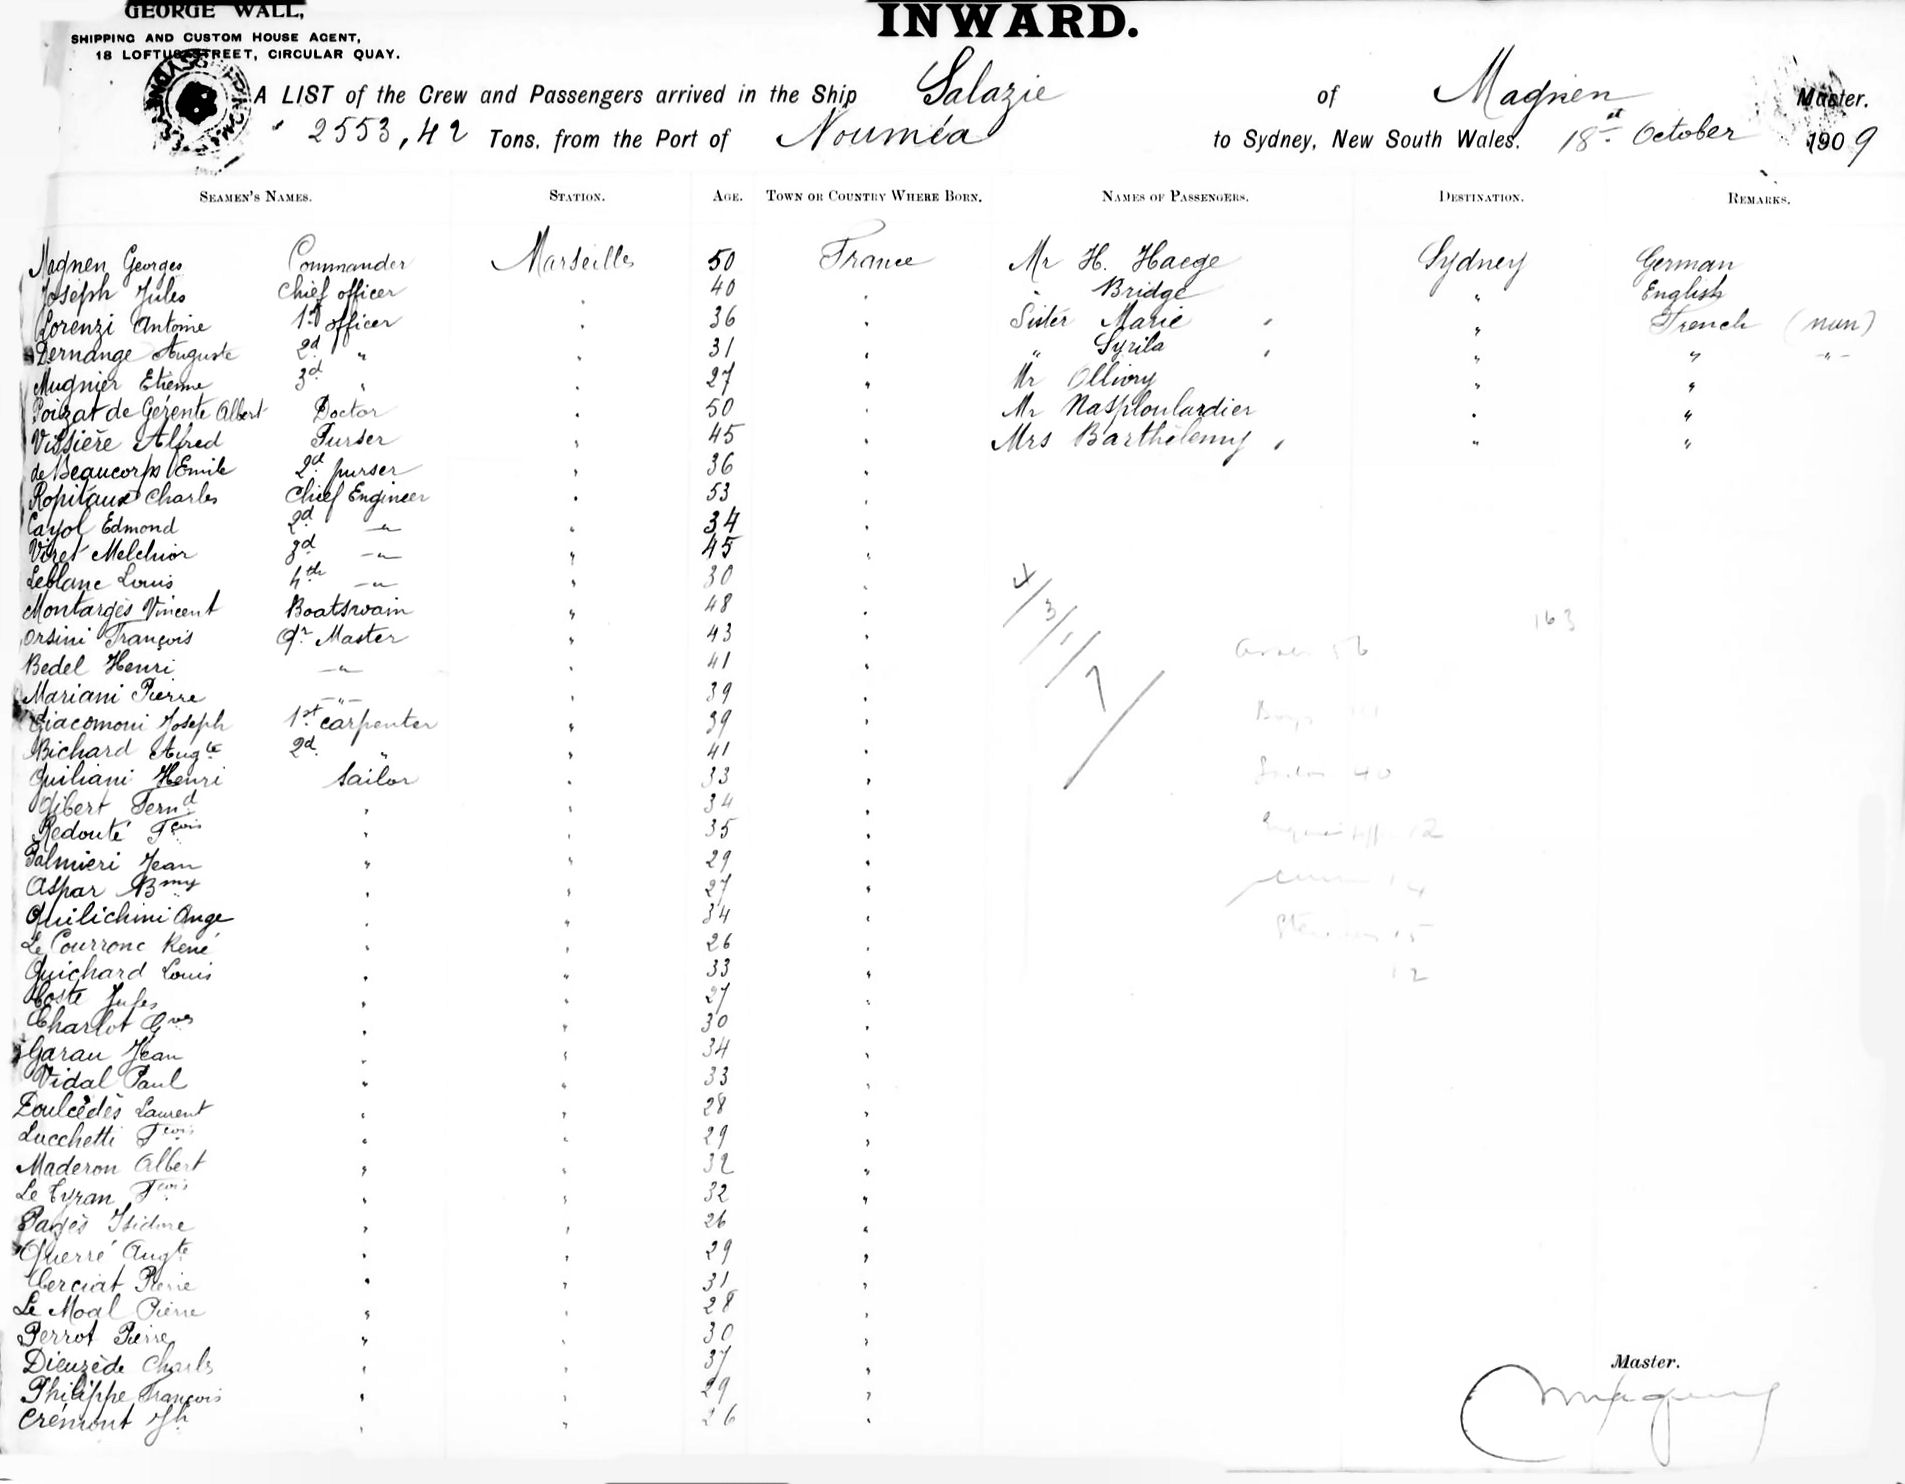 GEORGE WALL,
SHIPPING AND CUSTOM HOUSE AGENT,
18 LOFTUS STREET, CIRCULAR QUAY.
INWARD.
A LIST of the Crew and Passengers arrived in the Ship Salazie of Magnen Master.
2553,42 Tons, from the Port of Nouméa to Sydney, New South Wales. 18st October 1909
SEAMEN'S NAMES. STATION. AGE. TOWN OR COUNTRY WHERE BORN. NAMES OF PASSENGERS. DESTINATION. REMARKS.
Magnen Georges Commander Marseille 50 France Mr H. Haege Sydney German
Joseph Jules Chief officer " 40 " " Bridge " English
Lorenzi Antoine 1st officer " 36 " Sister Marie " " French (nun)
Dernange Auguste 2d " " 31 " " Syrila " " " -"-
Mugnier Etienne 3d " " 27 " Mr Ollivry " "
Poizat de Gérente Albert Doctor " 50 " Mr Nasploulardier " "
Vissière Alfred Purser " 45 " Mrs Barthélemy " " "
de Beaucorps Emile 2d purser " 36 "
Ropitaux Charles Chief Engineer " 53 "
Cayol Edmond 2d -"- " 34 "
Viret Melchior 3d -"- " 45 "
Leblanc Louis 4th -"- " 30 "
Montargès Vincent Boatswain " 48 "
Orsini François Qr Master " 43 "
Bedel Henri -"- " 41 "
Mariani Pierre -"- " 39 "
Giacomoni Joseph 1st carpenter " 39 "
Bichard Augte 2d " " 41 "
Guiliani Henri Sailor " 33 "
Gibert Fernd " " 34 "
Redouté Fçois " " 35 "
Palmieri Jean " " 29 "
Aspar Bmy " " 27 "
Quilichini Ange " " 34 "
Le Courronc René " " 26 "
Guichard Louis " " 33 "
Coste Jules " " 27 "
Charlot Gves " " 30 "
Garau Jean " " 34 "
Vidal Paul " " 33 "
Doulcédès Laurent " " 28 "
Lucchetti Fçois " " 29 "
Maderon Albert " " 32 "
Le Tyran Fçois " " 32 "
Pagès Isidore " " 26 "
Querré Augte " " 29 "
Cerciat Pierre " " 31 "
Le Moal Pierre " " 28 "
Perrot Pierre " " 30 "
Dieuzède Charles " " 37 "
Philippe François " " 29 "
Crémont Jh " " 26 "
4/3/1/7/
163
56
Boys
40
12
14
15
12
Master.
Magnen